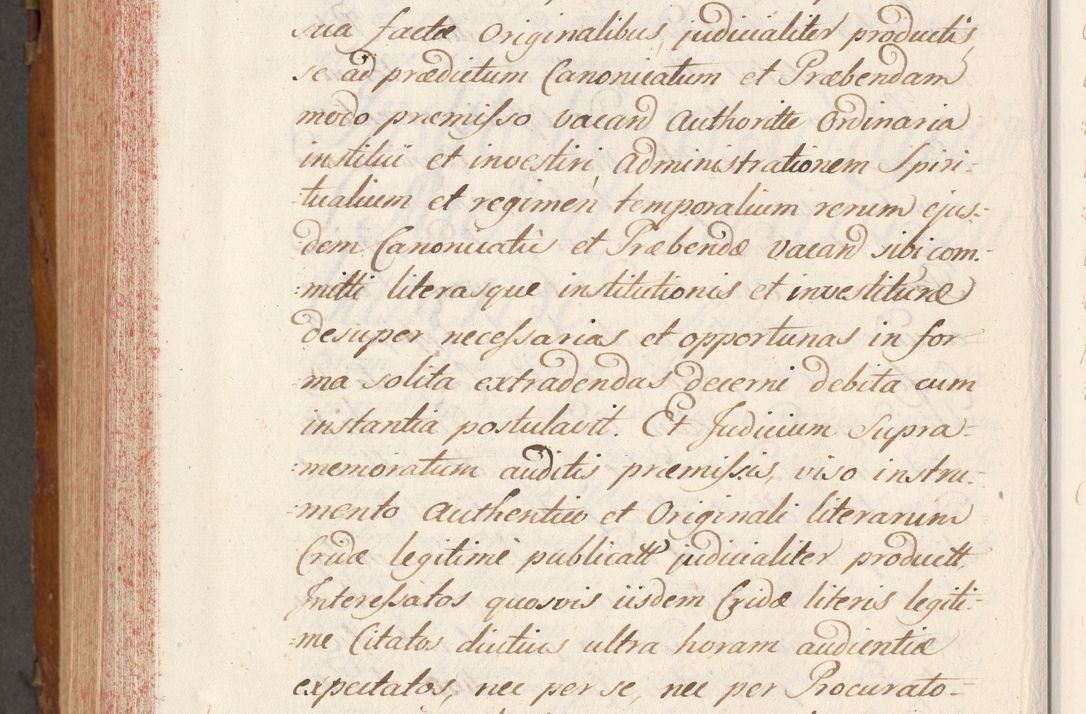 sua factæ Originalibus, judicialiter productis,
se ad prædictum Canonicatum et Præbendam
modo premisso vacand Authoritte Ordinaria
institui et investiri, Administrationem Spiri-
tualium et regimen temporalium rerum ejus-
dem Canonicatûs et Præbendæ vacand sibi com-
mitti literasque institutionis et investituræ
desuper necessarias et opportunas in for-
ma solita extradendas decerni debita cum
instantia postulavit. Et Judicium Supra-
memoratum auditis præmissis, viso instru-
mento Authentico et Originali literarum
Cridæ legitimè publicatt judicialiter productt
Interessatos quosvis iisdem Cridæ literis legiti-
me Citatos diutius ultra horam audientiæ
expectatos, nec per se, nec per Procurato-